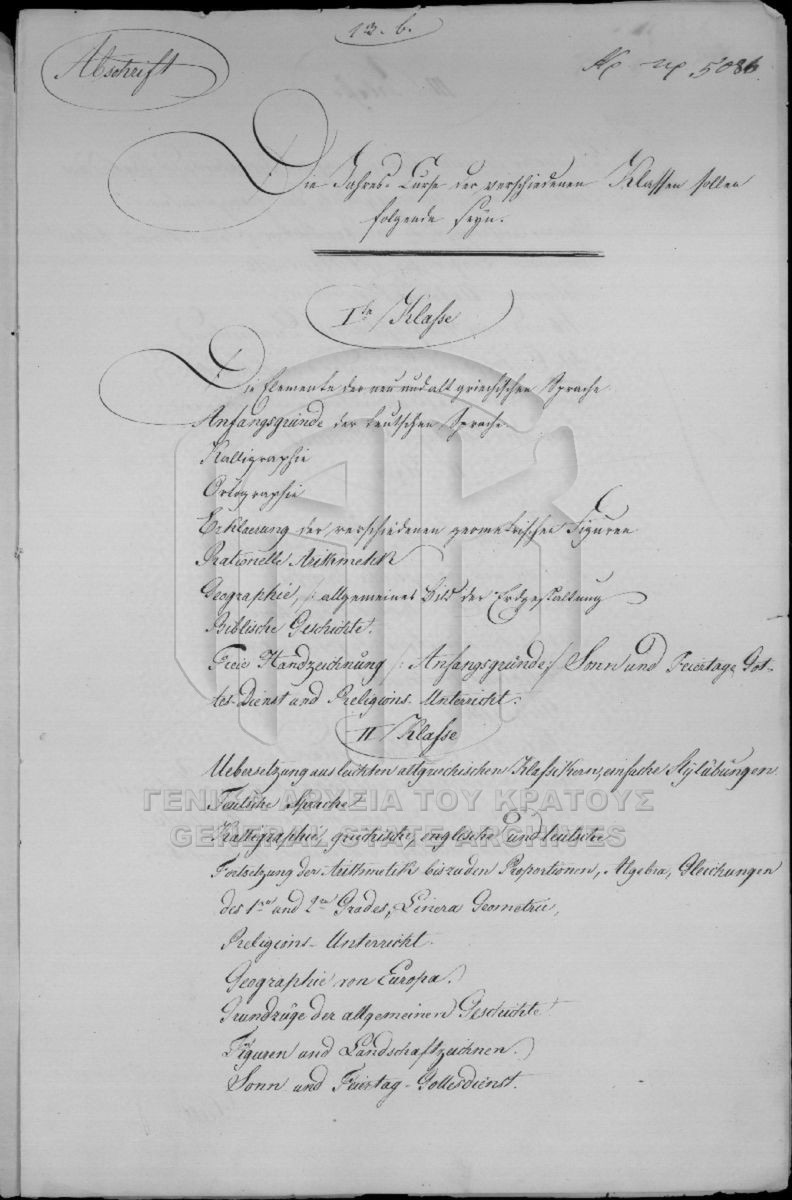 13. b.
Abschrift
5086.
Die Jahres-Curse der verschiedenen Klassen sollen
folgende seyn.
Ite Klasse
Die Elemente der neu und alt griechischen Sprache
Anfangsgründe der teutschen Sprache
Kalligraphie
Ortographie
Erklaerung der verschiedenen geometrischen Figuren
Rationelle Arithmetik
Geographie, /: allgemeines Bild der Erdgestaltung
Biblische Geschichte.
Freie Handzeichnung /: Anfangsgründe :/ Sonn und Feiertags Got-
tes-Dienst und Religions-Unterricht.
II Klasse
Uebersetzung aus leichten altgriechischen Klassikern, einfache Stÿlübungen
Teutsche Sprache
ΓΕΝΙΚΑ ΑΡΧΕΙΑ ΤΟΥ ΚΡΑΤΟΥΣ
Kalligraphie griechische, englische und teutsche
GENERAL STATE ARCHIVES
Fortsetzung der Arithmetik bis zu den Proportionen, Algebra, Gleichungen
des 1ten und 2ten Grades, Linera Geometrie,
Religions-Unterricht.
Geographie von Europa.
Grundzüge der allgemeinen Geschichte
Figuren und Landschaftzeichnen.
Sonn und Feiertag-Gottesdienst.